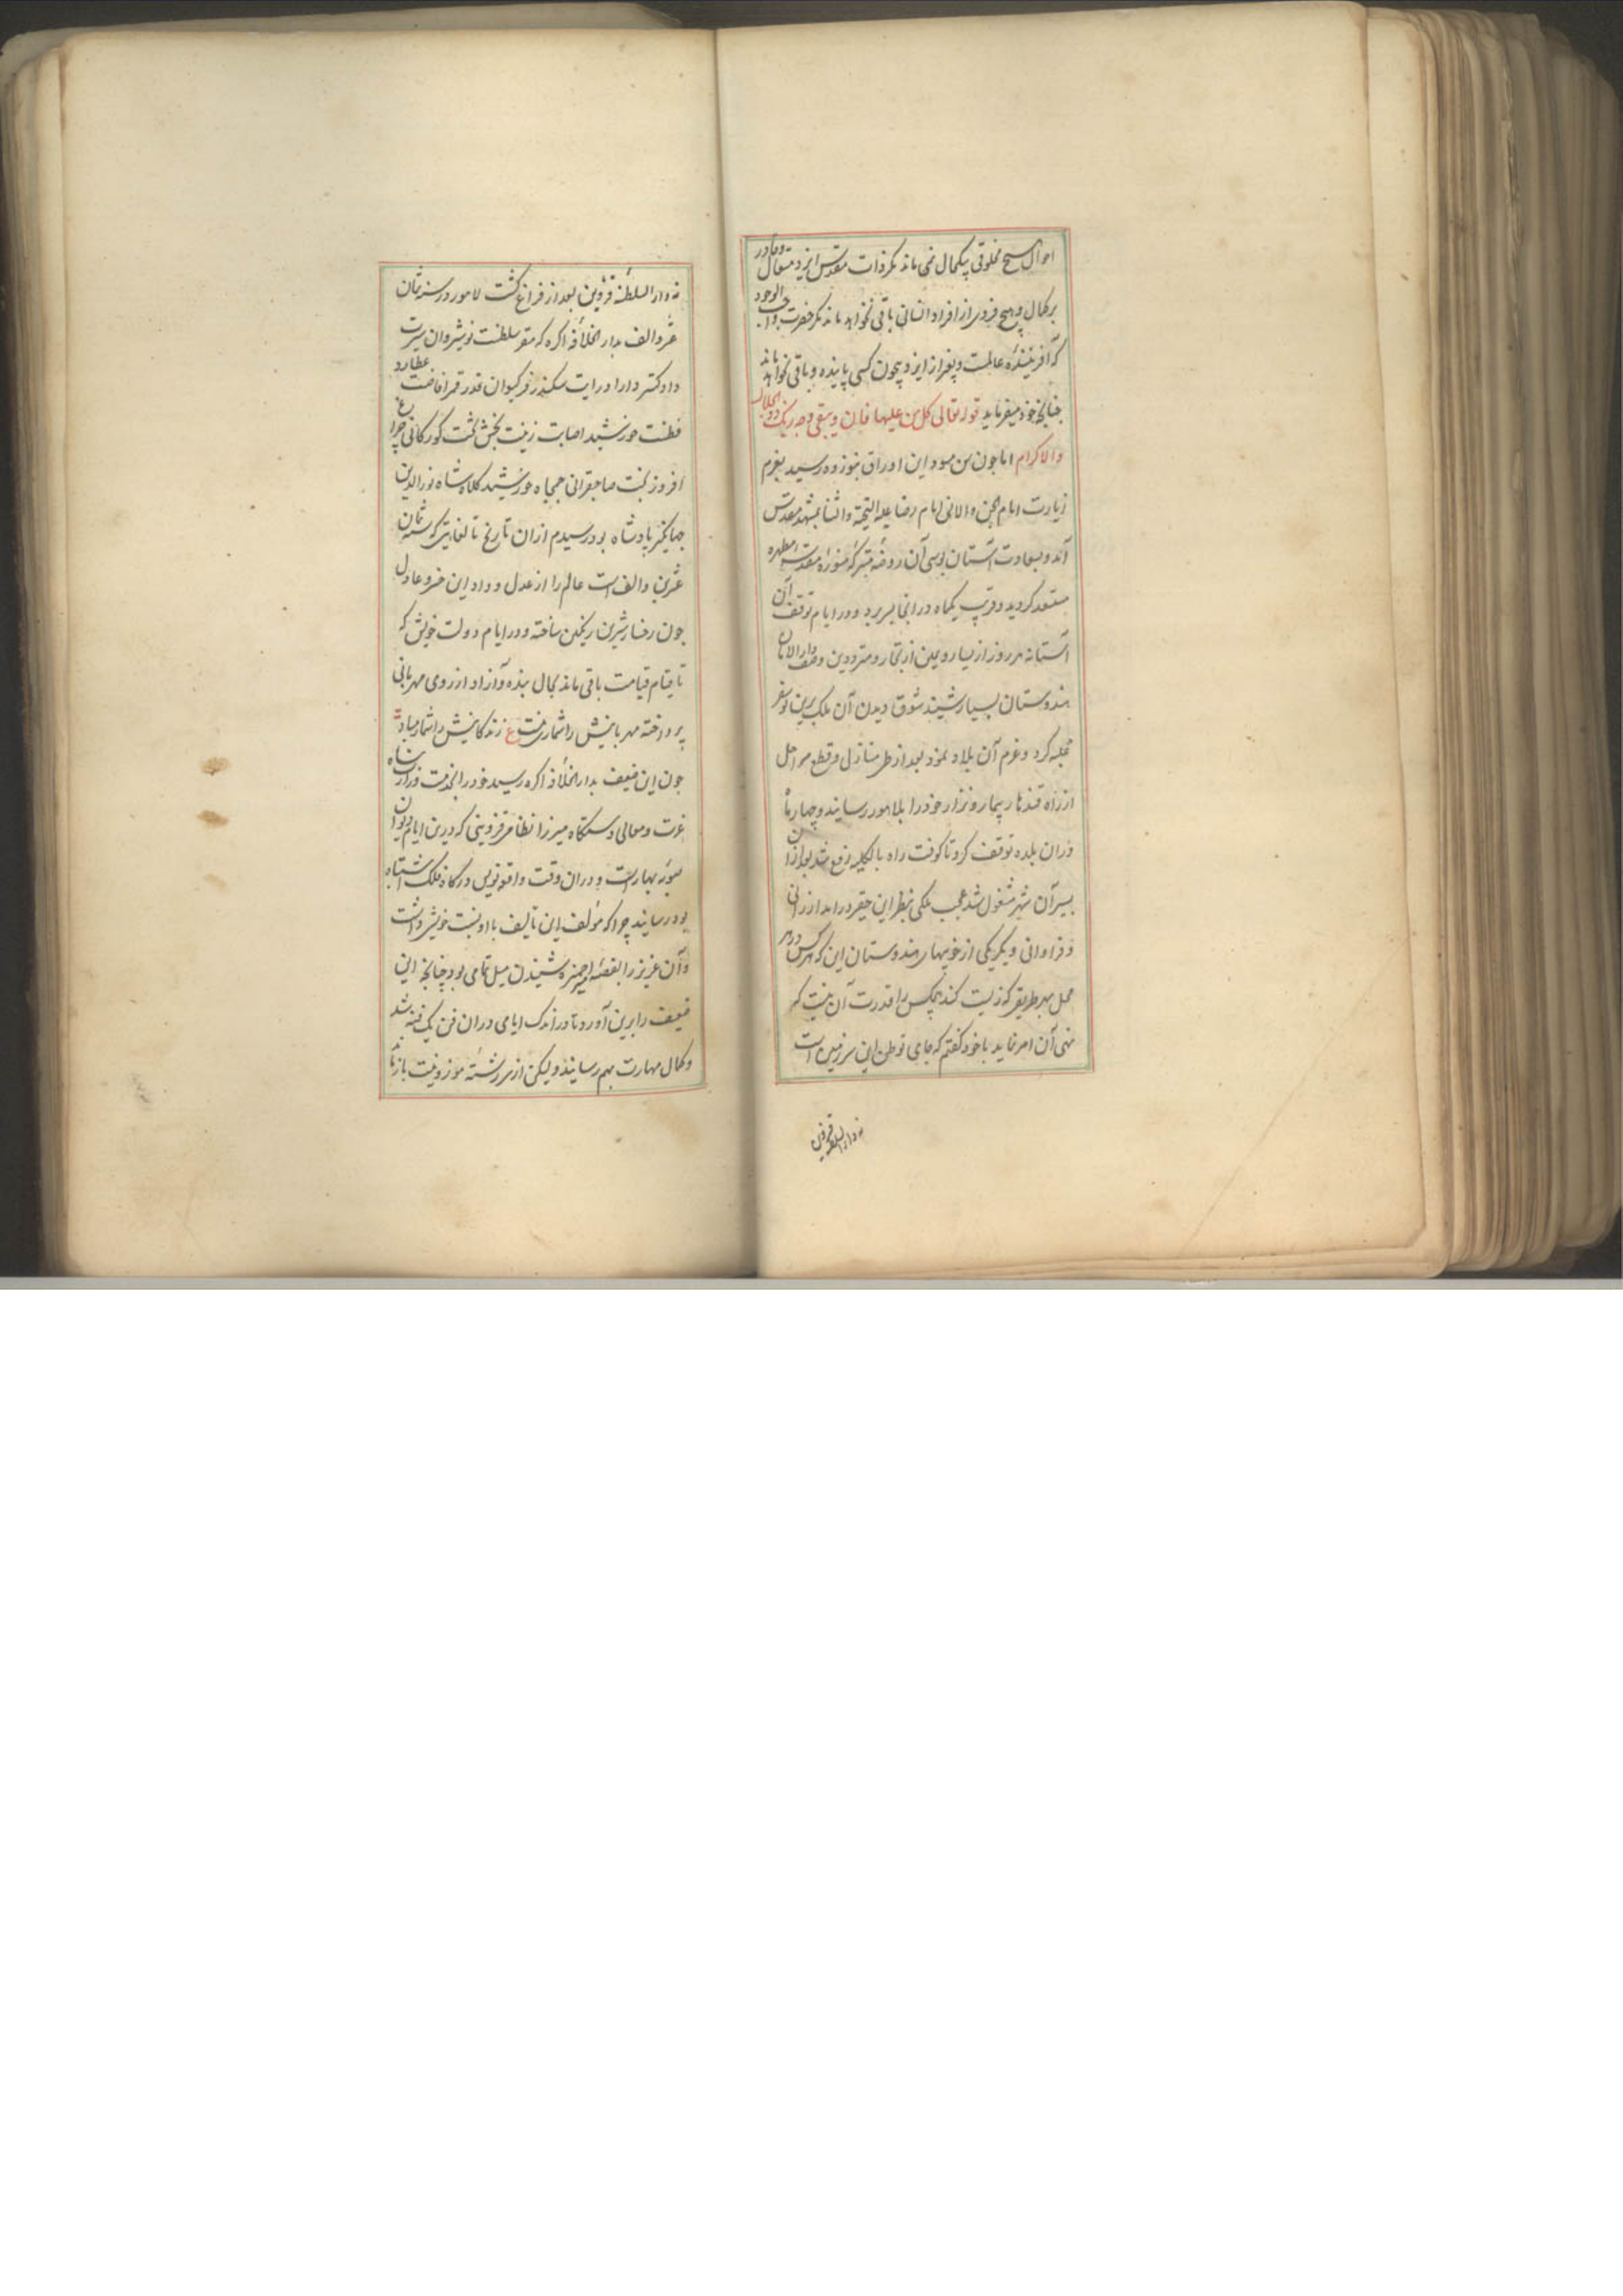 احوال هیچ مخلوقی بیکحال نمی ماند مکر ذات مقدس ایزد متعال و قادر
برکمال و هیچ فردی از افراد انسانی باقی نخواهد ماند مکر حضرت واجب الوجود
که آفریننده عالمست و بغیر از ایزد بیچون کسی پاینده و باقی نخواهد ماند
چنانچه خود میفرماید قوله تعالی کل من علیها فان و یبقی وجه ربک ذو الجلال
والاکرام اما چون سن مسود این اوراق بنوزده رسید بعزم
زیارت امام الجن والانس امام رضا علیه التحیة والثنا بمشهد مقدس
آمد و بسعادت آستان بوسی آن روضه متبرکه منوره مقدسه مطهره
مستعد کردید و قریب یکماه در انجا بسر برد و در ایام توقف آن
آستانه هر روز از یسار و یمین از تجار و مترددین وصف دار الامان
هندوستان بسیار شنید شوق دیدن آن ملک برین نو سفر
غلبه کرد و عزم آن بلاد نمود بعد از طی منازل و قطع مراحل
از راه قندهار بیمار و نزار خود را بلاهور رسانید و چهار ماه
دران بلده توقف کرد تا کوفت راه بالکلیه رفع شد بعد ازان
بسیر آن شهر مشغول شد عجب ملکی بنظر این حقیر درامد ارزانی
و فراوانی و یکی دیکر از خوبیهای هندوستان این که هر کس در هر
محل بهر طریقی که زیست کند هیچکس را قدرت آن نیست که
نهی آن امر نماید با خود کفتم که جای توطن این سرزمین است
نه دار السلطنه قزوین
نه دار السلطنه قزوین بعد از فراغ کشت لاهور در سنه ثمان
عشر و الف بدار الخلافه اکره که مقر سلطنت نوشیروان سیرت
داد کستر دارا درایت سکندر فر کیوان قدر قمر افاضت عطارد
فطنت خورشید اصابت زینت بخش تخت کورکانی چراغ
افروز بخت صاحبقرانی جمجاه خورشید کلاه شاه نور الدین
جهانکیر پادشاه بود رسیدم ازان تاریخ تا لغایتی که سنه ثمان
عشرین و الف است عالم را از عدل و داد این خسرو عادل
چون رخسار شیرین رنکین ساخته و در ایام دولت خویش که
تا قیام قیامت باقی ماند بحال بنده و آزاد از روی مهربانی
پرداخته مهربانیش را شمار نیست ع زندکانیش را شمار مباد
چون این ضعیف بدار الخلافه اکره رسید خود را بخدمت
عزت و معالی دستکاه میرزا نظامی قزوینی که درین ایام دیوان
صوبه بهار است و دران وقت واقعه نویس درکاه فلک اشتباه
بود رسانید چرا که مؤلف این تألیف با او نسبت خویشی داشت
و آن عزیز را بقصه امیر حمزه شنیدن میل تمامی بود چنانچه این
ضعیف را برین آورد تا در اندک ایامی دران فن یک فنه شد
و کمال مهارت بهم رسانید و لیکن از سر رشته موزونیت باز